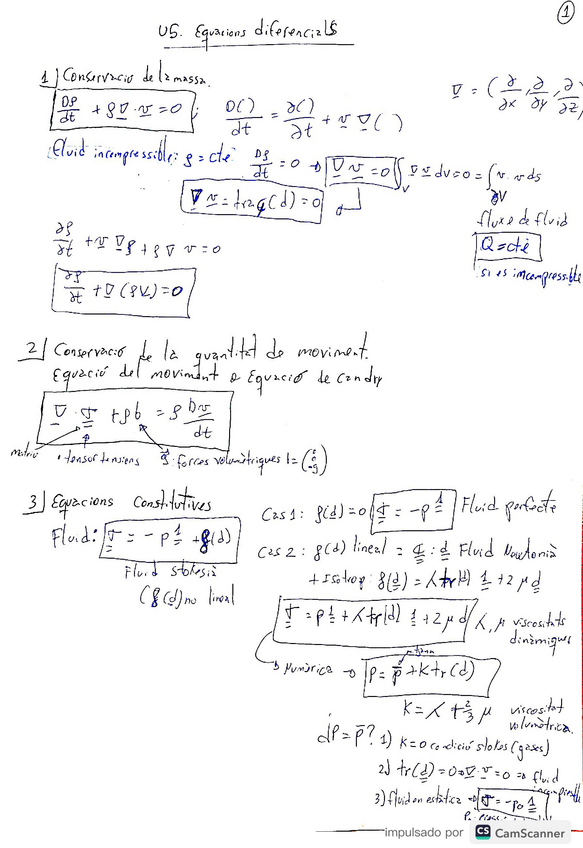 ①
U5. Equacions diferencials
1) Conservació de la massa.
Dρ/dt + ρ∇·v = 0 ; D( )/dt = ∂( )/∂t + v ∇( )
∇ = (∂/∂x, ∂/∂y, ∂/∂z)
Fluid incompressible: ρ = cte Dρ/dt = 0 → ∇v = 0 ∫_V ∇v dv = 0 = ∫_∂V v·v ds
∇v = traça(d) = 0
fluxe de fluid
Q = cte
si es incompressible
∂ρ/∂t + v∇ρ + ρ∇v = 0
∂ρ/∂t + ∇(ρv) = 0
2) Conservació de la quantitat de moviment.
Equació del moviment o Equació de Cauchy
∇·σ + ρb = ρ Dv/dt
tensor tensions forces volumètriques b = (0 0 -g)
3) Equacions Constitutives
Fluid: σ = -p1 + f(d)
Fluid stokesià
(f(d) no lineal
Cas 1: f(d) = 0 σ = -p1 Fluid perfecte
Cas 2: f(d) lineal = C : d Fluid Newtonià
+ Isotrop: f(d) = λtr(d) 1 + 2μd
σ = p1 + λtr(d) 1 + 2μd λ, μ viscositats
dinàmiques
p = p̄ + K tr(d)
K = λ + 2/3 μ viscositat
volumètrica.
¿P = p̄? 1) K = 0 condició stokes (gases)
2) tr(d) = 0 → ∇·v = 0 ⇒ fluid
incompressible
3) fluid en estàtica → σ = -p₀1
impulsado por CS CamScanner